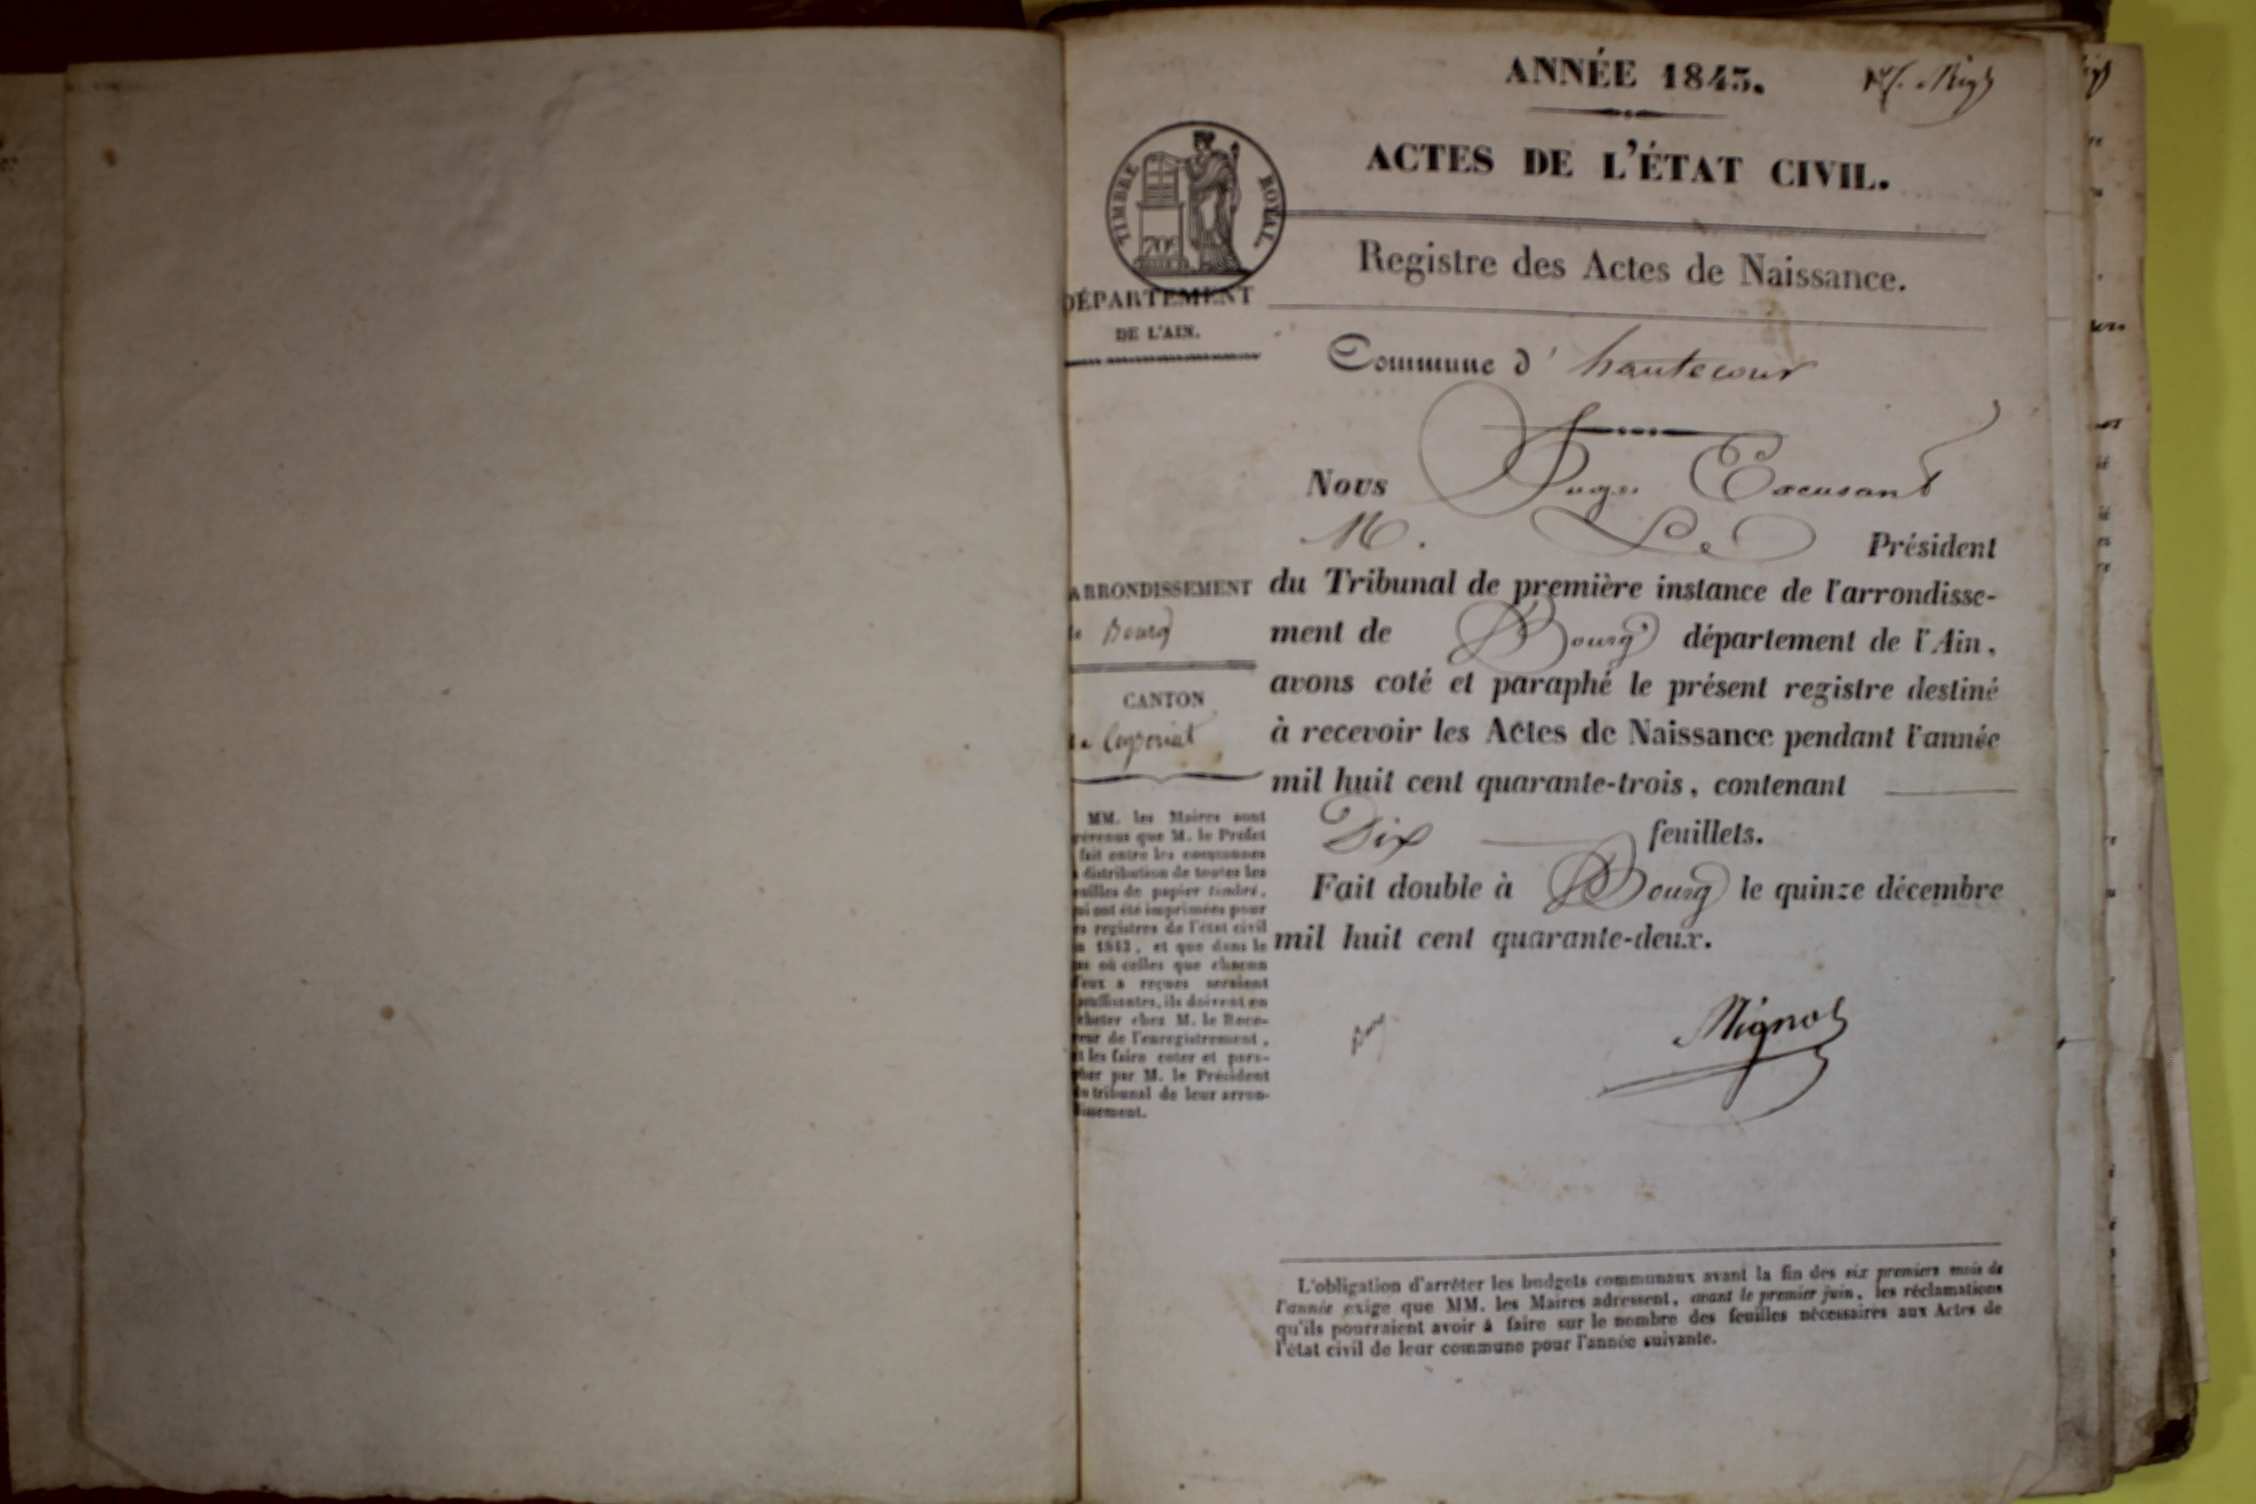 ANNÉE 1843.
ACTES DE L'ÉTAT CIVIL.
TIMBRE ROYAL.
70c
Registre des Actes de Naissance.
DÉPARTEMENT
DE L'AIN.
Commune d' hautecour
Nous Juge Excusant
M. Le Président
ARRONDISSEMENT
de Bourg
CANTON
de Ceyzeriat
du Tribunal de première instance de l'arrondisse-
ment de Bourg département de l'Ain,
avons coté et paraphé le présent registre destiné
à recevoir les Actes de Naissance pendant l'année
mil huit cent quarante-trois, contenant
Dix feuillets.
Fait double à Bourg le quinze décembre
mil huit cent quarante-deux.
MM. les Maires sont
prévenus que M. le Préfet
fait entre les communes
distribution de toutes les
feuilles de papier timbré,
qui ont été imprimées pour
les registres de l'état civil
1843, et que dans le
cas où celles que chacun
d'eux a reçues seraient
insuffisantes, ils doivent en
acheter chez M. le Rece-
veur de l'enregistrement,
et les faire coter et para-
pher par M. le Président
du tribunal de leur arron-
dissement.
Mignot
L'obligation d'arrêter les budgets communaux avant la fin des six premiers mois de
l'année exige que MM. les Maires adressent, avant le premier juin, les réclamations
qu'ils pourraient avoir à faire sur le nombre des feuilles nécessaires aux Actes de
l'état civil de leur commune pour l'année suivante.